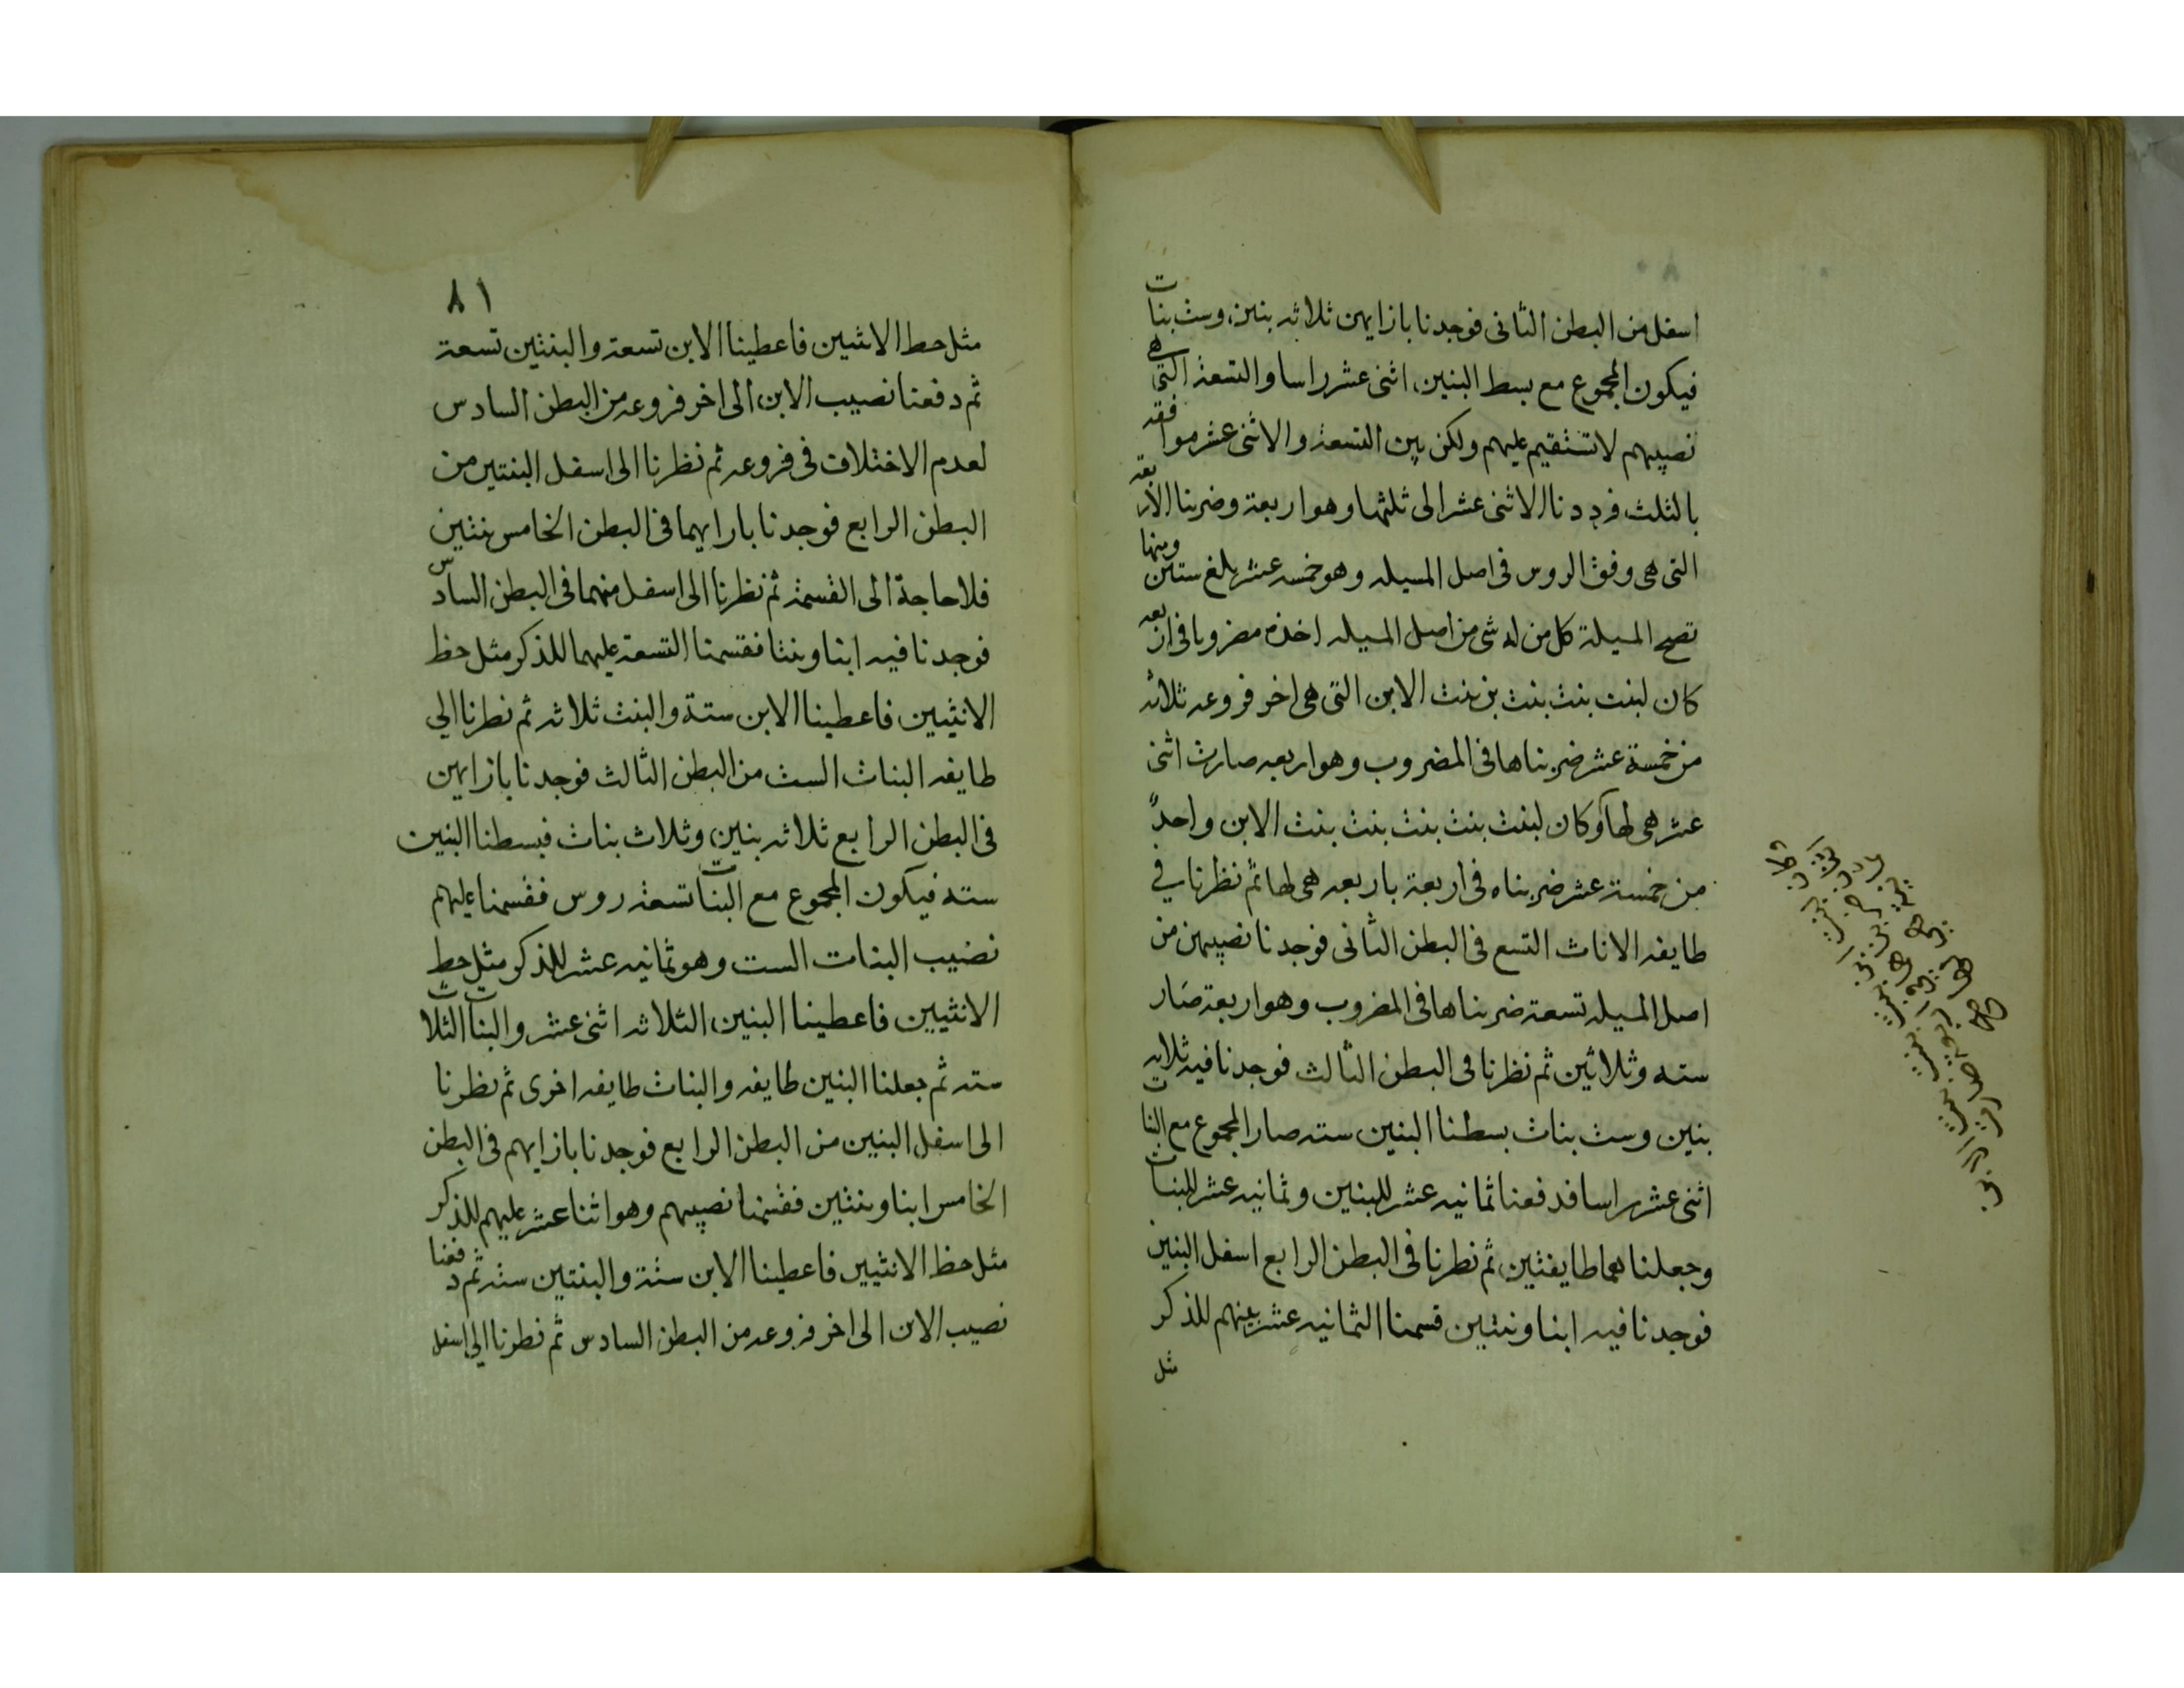 اسفل من البطن الثانى فوجدنا بازايهن ثلاثه بنين وست بنات
فيكون المجموع مع بسط البنين اثنى عشر راسا والتسعة التى هى
نصيبهم لا تستقيم عليهم ولكن بين التسعة والاثنى عشر موافقه
بالثلث فرددنا الاثنى عشر الى ثلثها وهو اربعة وضربنا الاربعة
التى هى وفق الروس فى اصل المسيله وهو خمسه عشر بلغ ستين ومنها
تصح المسيلة كل من له شى من اصل المسيله اخذه مضروبا فى اربعه
كان لبنت بنت بنت بن بنت الابن التى هى اخر فروعه ثلاثه
من خمسة عشر ضربناها فى المضروب وهو اربعه صارت اثنى
عشر هى لها وكان لبنت بنت بنت بنت بنت الابن واحدً
من خمسة عشر ضربناه فى اربعة باربعه هى لها ثم نظرنا في
طايفه الاناث التسع فى البطن الثانى فوجدنا نصيبهن من
اصل المسيله تسعة ضربناها فى المضروب وهو اربعة صار
سته وثلاثين ثم نظرنا فى البطن الثالث فوجدنا فيه ثلاثه
بنين وست بنات بسطنا البنين سته صار المجموع مع البنات
اثنى عشر راسا فدفعنا ثمانيه عشر للبنين وثمانيه عشر للبنات
وجعلناهما طايفتين ثم نظرنا فى البطن الرابع اسفل البنين
فوجدنا فيه ابنا وبنتين قسمنا الثمانيه عشر بينهم للذكر
مثل
٨١
مثل حط الانثيين فاعطينا الابن تسعة والبنتين تسعة
ثم دفعنا نصيب الابن الى اخر فروعه من البطن السادس
لعدم الاختلاف فى فروعه ثم نظرنا الى اسفل البنتين من
البطن الرابع فوجدنا بازايهما فى البطن الخامس بنتين
فلا حاجة الى القسمة ثم نظرنا الى اسفل منهما فى البطن السادس
فوجدنا فيه ابنا وبنتا فقسمنا التسعة عليهما للذكر مثل حظ
الانثيين فاعطينا الابن ستة والبنت ثلاثه ثم نظرنا الي
طايفه البنات الست من البطن الثالث فوجدنا بازايهن
فى البطن الرابع ثلاثه بنين وثلاث بنات فبسطنا البنين
سته فيكون المجموع مع البنات تسعة روس فقسمنا عليهم
نصيب البنات الست وهو ثمانيه عشر للذكر مثل حط
الانثيين فاعطينا البنين الثلاثه اثنى عشر والبنات الثلاث
سته ثم جعلنا البنين طايفه والبنات طايفه اخرى ثم نظرنا
الى اسفل البنين من البطن الرابع فوجدنا بازايهم فى البطن
الخامس ابنا وبنتين فقسمنا نصيبهم وهو اثنا عشر عليهم للذكر
مثل حظ الانثيين فاعطينا الابن ستة والبنتين سته ثم دفعنا
نصيب الابن الى اخر فروعه من البطن السادس ثم نظرنا الي اسفل